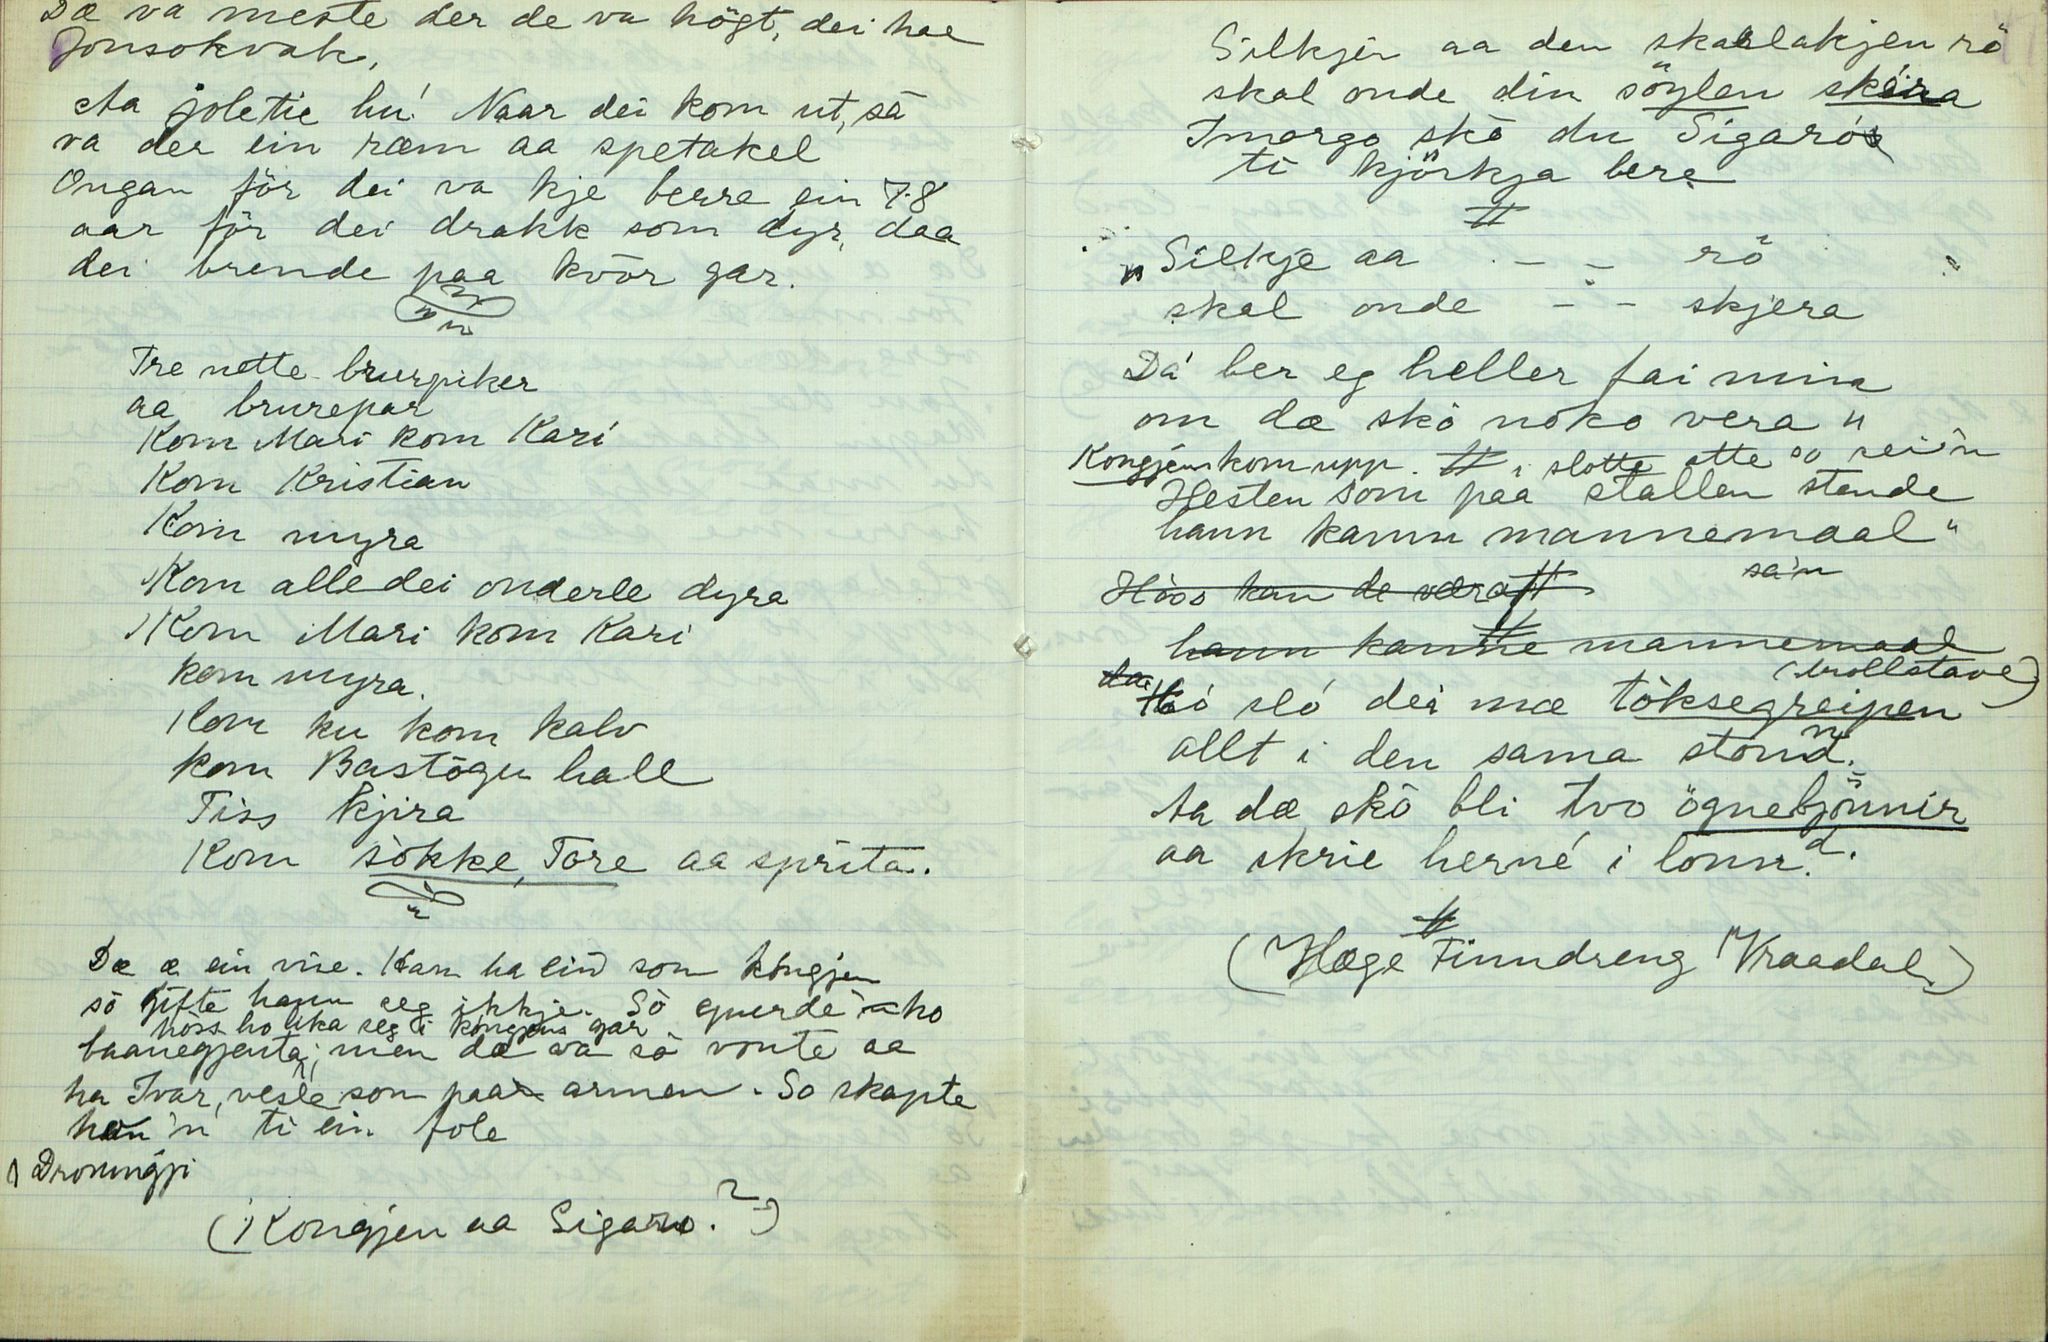 Dæ va meste der de va högt, dei hae
Jonsokvak,
Aa joletie hu! Naar dei kom ut, så
va der ein ræm aa spetakel
Ongan för dei va kje berre ein 7-8
aar för dei drakk som dyr, daa
dei brende paa kvör gar.
Tre nette brurpiker
aa brurepar
Kom Mari kom Kari
Kom Kristian
Kom myra
Kom alle dei onderle dyra
Kom Mari kom Kari
kom myra.
Kom ku kom kalv
kom Bastögu hall
Tiss kjira
Kom sökke, Tore aa sprita.
Dæ æ ein vise. Han ha ein som kongjen
sö gifte hann seg ikkje. Sö spurde ho
höss ho lika seg i kongens gar
baanegjenta; men dæ va så vonte aa
ha Ivar, vesle son paa armen. So skapte
han'n ti ein fole
Droningji
(Kongjen aa Sigaro.?)
Silkjen aa den skarlakjen rö
skal onde din söylen skjera
Imorgo skö du Sigaró
ti kjörkja bera
#
"Silkje aa - - rö
skal onde - - skjera
Då ber eg heller fai mina
om dæ skö noko vera"
Kongjen kom upp. # i slotte atte so rei'n
Hesten som paa stallen stende
hann kann mannemaal"
sa'n
Höss kan de væra #
#
hann kanne mannemaal
(trollstave)
da
Så sló dei mæ töksegreipen
allt i den sama stond.
Aa dæ skö bli tvo ögnebjönnir
aa skrie herné i lönnd.
#
(Hæge Finndreng Vraadal.)